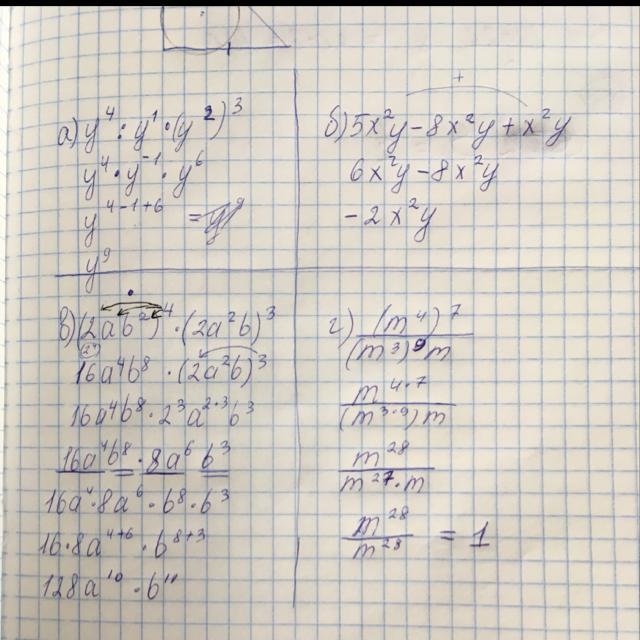 а) y⁴ : y¹ · (y²)³
y⁴ · y⁻¹ · y⁶
y⁴⁻¹⁺⁶ =
y⁹
б) 5x²y − 8x²y + x²y
+
6x²y − 8x²y
− 2x²y
в) (2ab²)⁴ · (2a²b)³
16a⁴b⁸ · (2a²b)³
16a⁴b⁸ · 2³a²·³b³
16a⁴b⁸ · 8a⁶b³
16a⁴ · 8a⁶ · b⁸ · b³
16 · 8a⁴⁺⁶ · b⁸⁺³
128a¹⁰ · b¹¹
г) (m⁴)⁷
(m³)⁹m
m⁴·⁷
(m³·⁹)m
m²⁸
m²⁷ · m
m²⁸
m²⁸ = 1